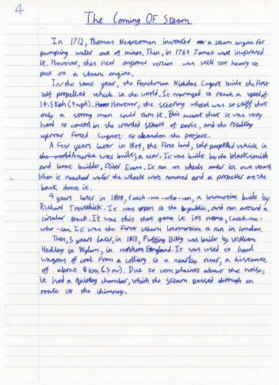 4
The Coming Of Steam
In 1712, Thomas Newcomen invented a steam engine for
pumping water out of mines. Then, in 1769 James Watt improved
it. However, this first engine version was well too heavy to
put on a steam engine.
In the same year, the Frenchman Nicholas Cugnot built the first
self propelled vehicle in the world. It managed to reach a speed of
However, the steering wheel was so stiff that
only a strong man could turn it. This meant that it was very
hard to control in the crowded streets of Paris, and the
forced Cugnot to abandon the project.
A few years later in 1804, the first land, self propelled vehicle in
America was built. It was built by the blacksmith
and home builder, Oliver Evans. It ran on wheels under its own steam
then it reached the water the wheels were removed and a propeller on the
back drove it.
4 years later in 1808, Catch-me-who-can, a locomotive built by
Richard Trevithick. It was open to the public, and ran around a
circular track. It was this that gave it its name, Catch-me-
who-can. It was the first steam locomotive to run in London.
Then, 5 years later, in 1813, Puffing Billy was built by William
Hedley in Wylam, in northern England. It was used to haul
wagons of coal from a colliery to a nearby river, a distance
of above 8 km (5 mi). Due to complaints about the noise,
it had a quieting chamber, which the steam passed through en
route to the chimney.